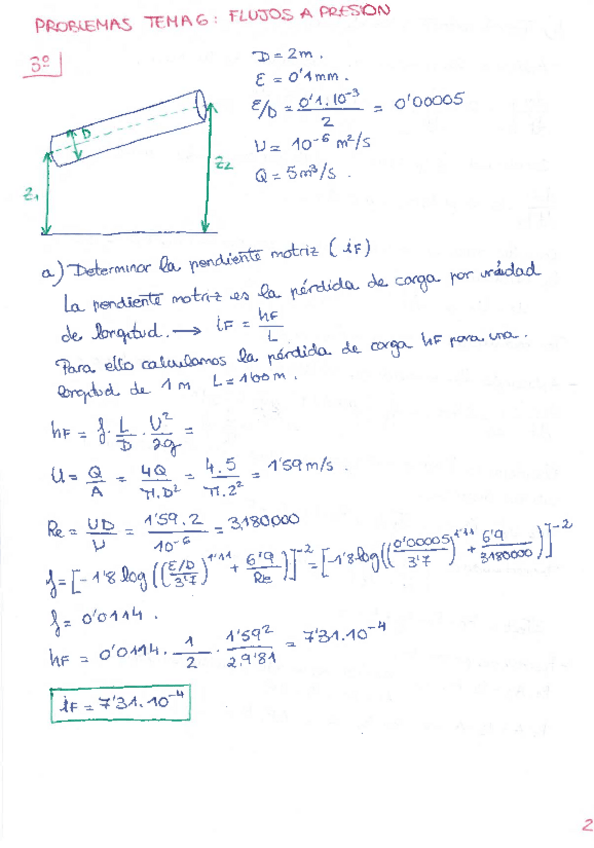 PROBLEMAS TEMA 6: FLUJOS A PRESION
3º
D = 2m.
ε = 0'1mm.
ε/D = 0'1.10⁻³ / 2 = 0'00005
υ = 10⁻⁶ m²/s
Q = 5m³/s.
D
z₁
z₂
a) Determinar la pendiente motriz (iF)
La pendiente motriz es la pérdida de carga por unidad
de longitud. → iF = hF / L
Para ello calculamos la pérdida de carga hF para una
longitud de 1 m L = 1'00m.
hF = f · L/D · U²/2g =
U = Q/A = 4Q / π.D² = 4.5 / π.2² = 1'59 m/s.
Re = UD / υ = 1'59.2 / 10⁻⁶ = 3.180000
f = [-1'8 log ((ε/D / 3'7)^1'11 + 6'9 / Re)]⁻² = [-1'8 log ((0'00005 / 3'7)^1'11 + 6'9 / 3180000)]⁻²
f = 0'0114.
hF = 0'0114 · 1/2 · 1'59² / 2.9'81 = 7'31.10⁻⁴
iF = 7'31.10⁻⁴
2